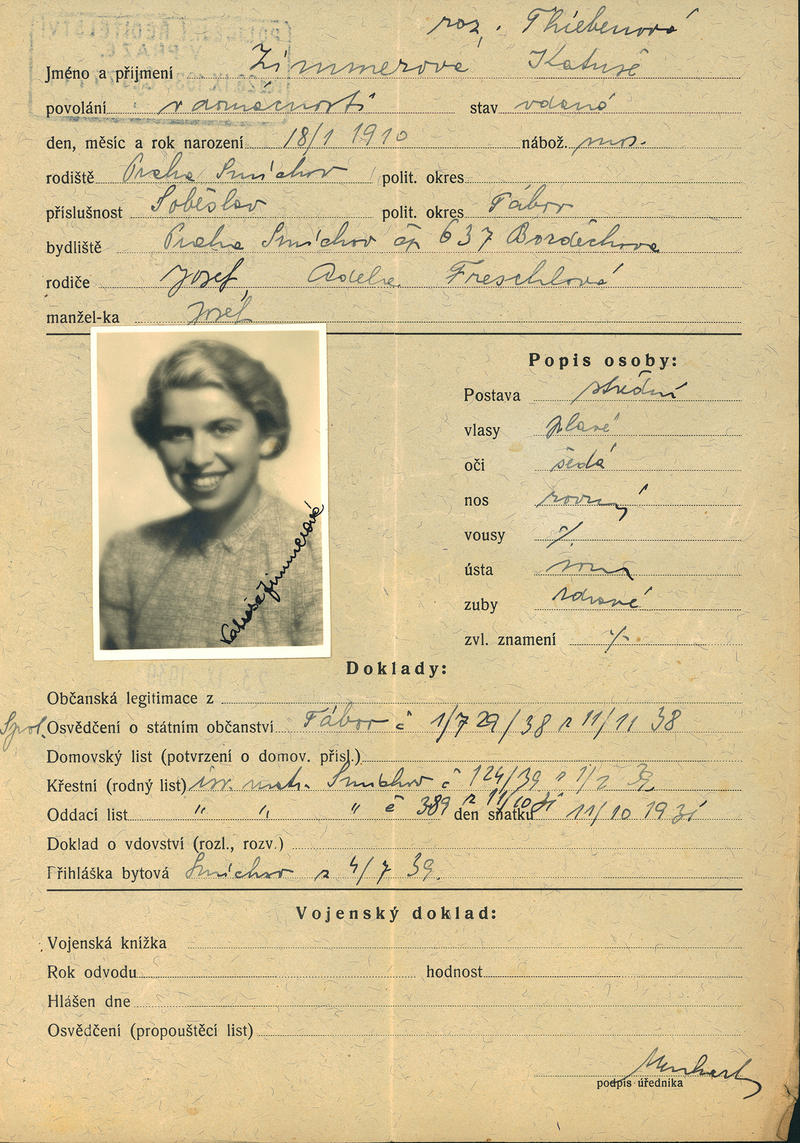 roz. Thiebenová
Jméno a příjmení Zimmerová Katuše
povolání v domácnosti stav vdaná
den, měsíc a rok narození 18/1 1910 nábož. mos.
rodiště Praha Smíchov polit. okres
příslušnost Soběslav polit. okres Tábor
bydliště Praha Smíchov čp 637
rodiče Josef, Freschlová
manžel-ka Josef
Popis osoby:
Postava střední
vlasy plavé
oči šedá
nos rovný
vousy ./.
ústa
zuby zdravé
zvl. znamení ./.
Zimmerová
Doklady:
Občanská legitimace z
Osvědčení o státním občanství Tábor č 1/729/38 z 11/11 38
Domovský list (potvrzení o domov. přísl.)
Křestní (rodný list) isr. matr. Smíchov č 124/39 z
Oddací list " " " č 389 z 11/10 31 den sňatku 11/10 1931
Doklad o vdovství (rozl., rozv.)
Přihláška bytová Smíchov z 4/7 39.
Vojenský doklad:
Vojenská knížka
Rok odvodu hodnost
Hlášen dne
Osvědčení (propouštěcí list)
podpis úředníka